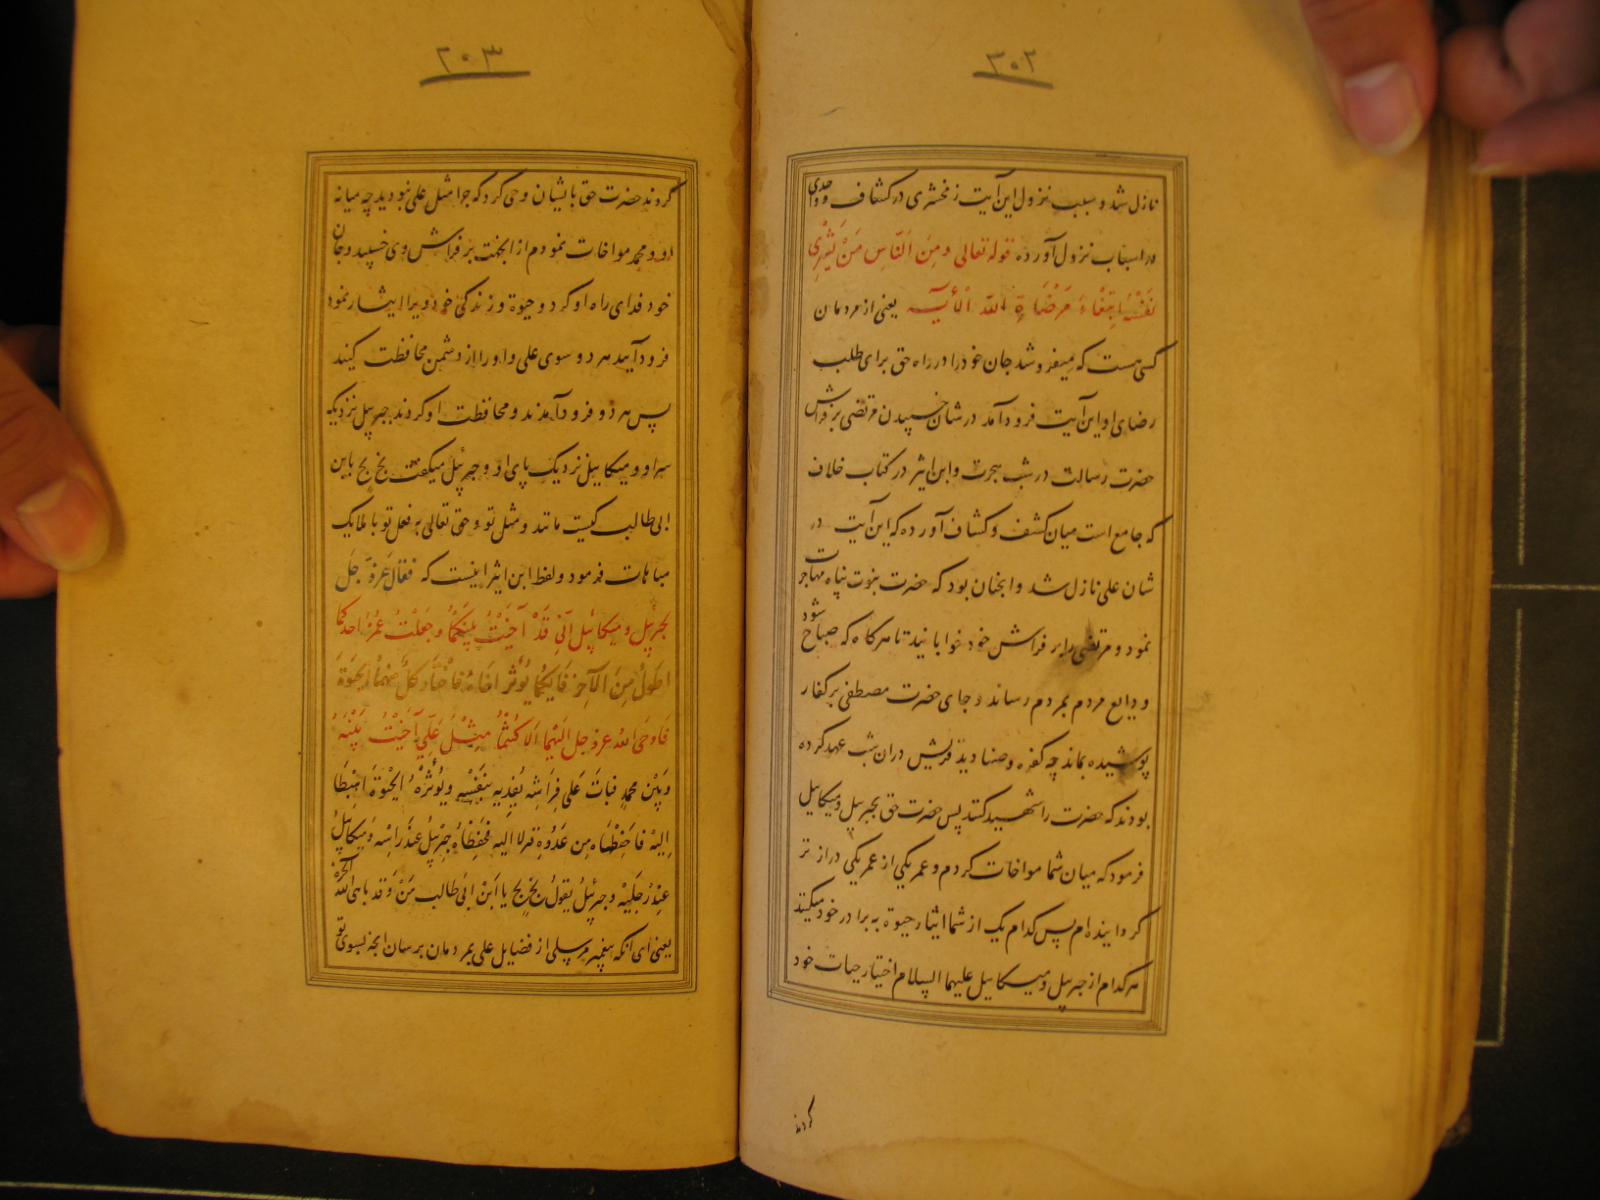 ۳۰۲
نازل شد و سبب نزول این آیت زمخشری در کشاف و واحدی
در اسباب نزول آورده قوله تعالی ومِنَ النّاسِ مَنْ یَشْرِی
نَفْسَهُ ابتِغاءَ مَرْضَاةِ اللّه الآیه یعنی از مردمان
کسی هست که میفروشد جان خود را در راه حق برای طلب
رضای او این آیت فرود آمد در شان خسپیدن مرتضی بر فراش
حضرت رسالت در شب هجرت و ابن اثیر در کتاب خلاف
که جامع است میان کشف و کشاف آورده که این آیت در
شان علی نازل شد و آنچنان بود که حضرت نبوت پناه مهاجرت
نمود و مرتضی را بر فراش خود خوابانید تا هرگاه که صباح شود
ودایع مردم بمردم رساند و جای حضرت مصطفی بر کفار
پوشیده بماند چه کفره و صنادید قریش در آن شب عهد کرده
بودند که حضرت را شهید کنند پس حضرت حق بجبرییل و میکاییل
فرمود که میان شما مواخات کردم و عمر یکی از عمر یکی دراز تر
گردانیده ام پس کدام یک از شما ایثار حیوة به برادر خود میکنید
هر کدام از جبرییل و میکاییل علیهما السلام اختیار حیات خود
کردند
۳۰۳
کردند حضرت حق با ایشان وحی کرد که چرا مثل علی نبودید چه میانه
او و محمد مواخات نمودم از انجهت بر فراش وی خسپید و جان
خود فدای راه او کرد و حیوة و زندگی خود ویرا ایثار نمود
فرود آیید هر دو سوی علی و او را از دشمن محافظت کنید
پس هر دو فرود آمدند و محافظت او کردند جبرییل نزدیک
سر او و میکاییل نزدیک پای او و جبرئیل میگفت بخ بخ یا بن
ابی طالب کیست مانند و مثل تو و حق تعالی به فعل تو با ملایک
مباهات فرمود و لفظ ابن اثیر اینست که فقال عزّ و جل
لجبرئیل و میکائیل انّی قَدْ آخَیْتُ بَیْنَکُما و جَعَلْتُ عمرُ احدکما
اَطوَلُ مِنَ الآخر فَایّکما یُؤثر اخاهُ فاختارَ کلٌ منهُما الحیوةَ
فَاَوحَی الله عزوجل الیهما اَلا کُنْتُما مِثْلَ عَلیّ آخَیْتُ بَیْنَهُ
وَ بَیْن محمدٍ فباتَ عَلی فِرَاشِه یُفْدِیهِ بِنَفْسِهِ ویُوثرُهُ الحیٰوةَ اهْبِطَا
اِلَیْهِ فَاحْفِظَاه مِن عَدُوّه فنزلا الیه فَحَفِظَاهُ جبرئیلُ عِنْدَ راسِه وَ میکائیلُ
عِنْدَ رِجلَیْه و جبرئیلُ یقولُ بخٍ بخٍ یا ابَن ابی طالب مَنْ وَ قد باهی اللهُ
یعنی ای آنکه پیغمبر مرسلی از فضایل علی بمردمان برسان انچه بسوی تو